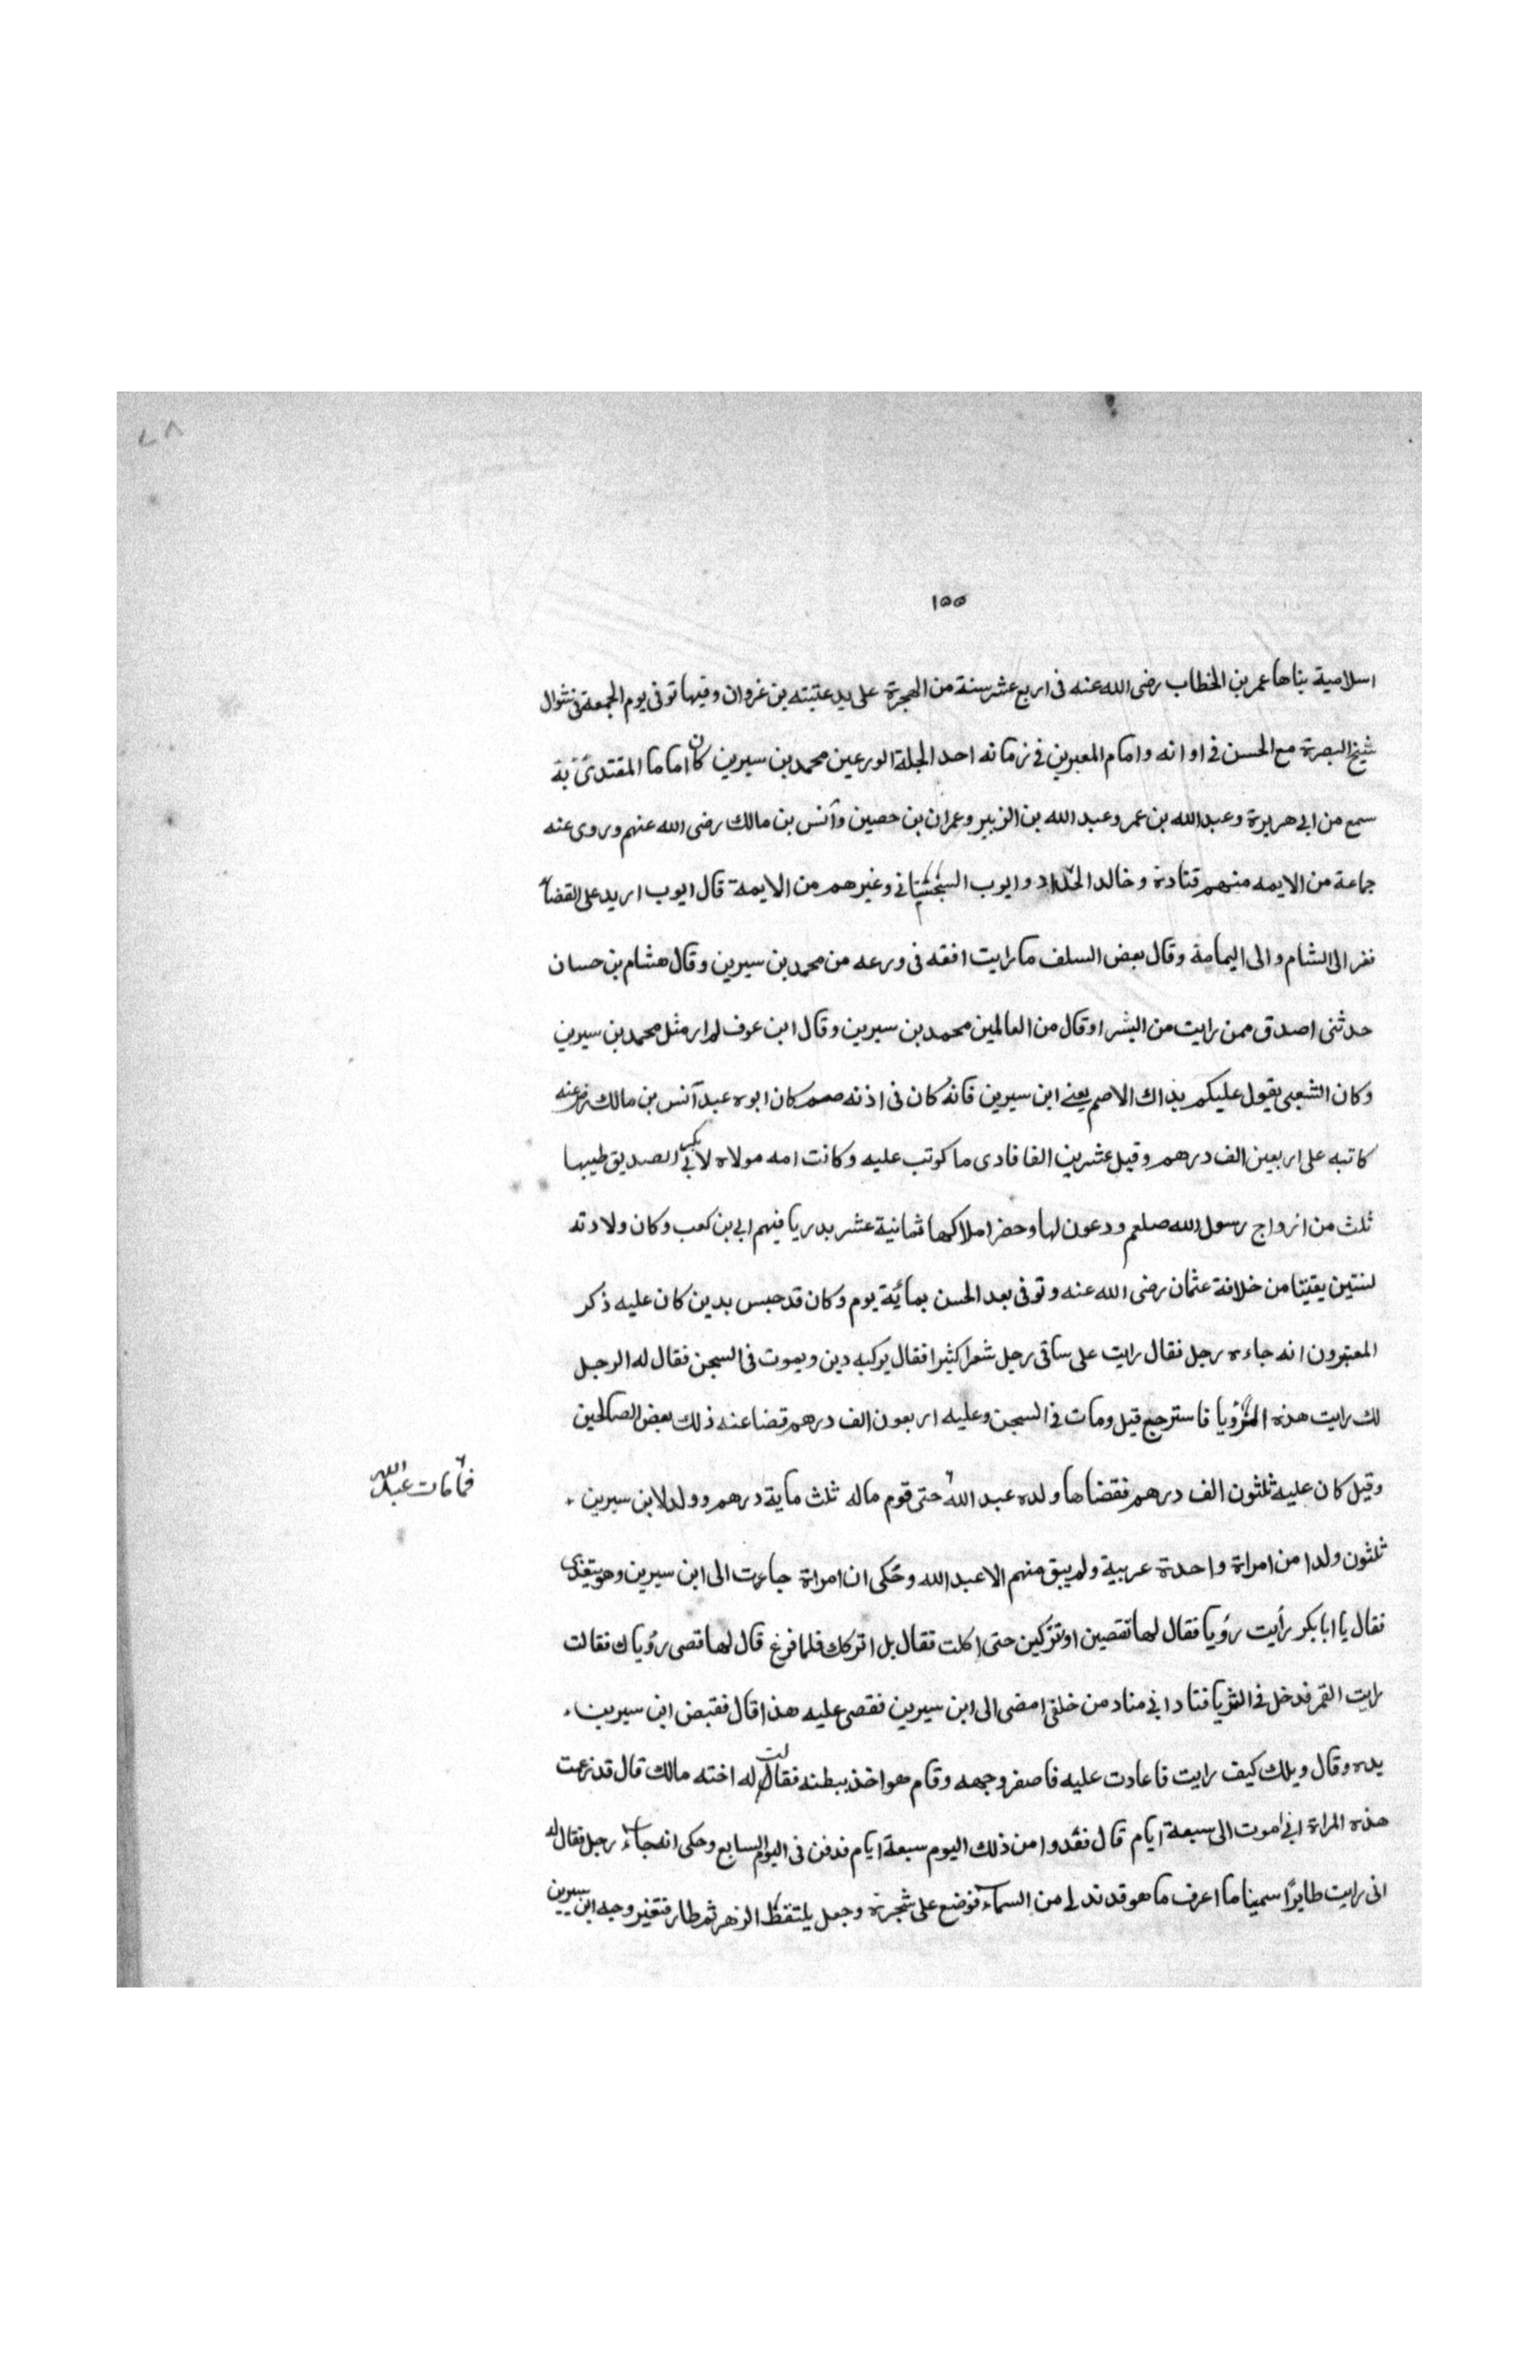 ٧٨
١٥٥
اسلامية بناها عمر بن الخطاب رضى الله عنه فى اربع عشر سنة من الهجرة على يد عتبته بن غزوان وفيها توفى يوم الجمعة فى شوال
شيخ البصرة مع الحسن فى اوانه وامام المعبرين فى زمانه احد الجلة الورعين محمد بن سيرين كان اماما المقتدىً به
سمع من ابى هريرة وعبد الله بن عمر وعبد الله بن الزبير وعمران بن حصين وأنس بن مالك رضى الله عنهم وروى عنه
جماعة من الايمه منهم قتادة وخالد الحداد وايوب السختيانى وغيرهم من الايمة قال ايوب اريد على القضاء
نفر الى الشام والى اليمامة وقال بعض السلف ما رايت افقه فى ورعه من محمد بن سيرين وقال هشام بن حسان
حدثنى اصدق ممن رايت من البشر او قال من العالمين محمد بن سيرين وقال ابن عوف لم ار مثل محمد بن سيرين
وكان الشعبى يقول عليكم بذاك الاصم يعنے ابن سيرين فانه كان فى اذنه صمم كان ابوه عبد أنس بن مالك رضى عنه
كاتبه على اربعين الف درهم وقيل عشرين الفا فادى ما كوتب عليه وكانت امه مولاه لابى بكر الصديق طيبها
ثلث من ازواج رسول الله صلعم ودعون لها وحضر املاكها ثمانية عشر بدريا فيهم ابى بن كعب وكان ولادته
لسنتين بقيتا من خلافة عثمان رضى الله عنه وتوفى بعد الحسن بمائة يوم وكان قد حبس بدين كان عليه ذكر
المعبرون انه جاءه رجل فقال رايت على ساقى رجل شعرا كثيرا فقال يركبه دين ويموت فى السجن فقال له الرجل
لك رايت هذه الرؤيا فاسترجع قيل ومات فى السجن وعليه اربعون الف درهم قضا عنه ذلك بعض الصالحين
وقيل كان عليه ثلثون الف درهم فقضاها ولده عبد الله حتى قوم ماله ثلث ماية درهم وولد لابن سيرين
فما مات عبد الله
ثلثون ولدا من امراة واحدة عربية ولم يبق منهم الا عبد الله وحكى ان امراة جاءت الى ابن سيرين وهو يتغدى
فقال يا ابا بكر رأيت رؤيا فقال لها تقصين او تتركين حتى اكلت فقال بل اتركك فلما فرغ قال لها قصى رؤياك فقالت
رايت القمر قد دخل فى الثريا فنادانى مناد من خلفى امضى الى ابن سيرين فقصى عليه هذا قال فقبض ابن سيرين
يده وقال ويلك كيف رايت فاعادت عليه فاصفر وجهه وقام هو اخذ ببطنه فقالت له اخته مالك قال قد زعمت
هذه المراة انى اموت الى سبعة ايام قال فعدوا من ذلك اليوم سبعة ايام فدفن فى اليوم السابع وحكى انه جاء رجل فقال له
انى رايت طايرًا سمينا ما اعرف ما هو قد تدلى من السماء فوضع على شجرة وجعل يلتقط الزهر ثم طار فتغير وجه ابن سيرين